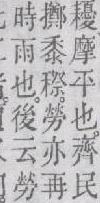 耰摩平也。齊民
擲黍穄。勞亦再
時雨也。後云勞